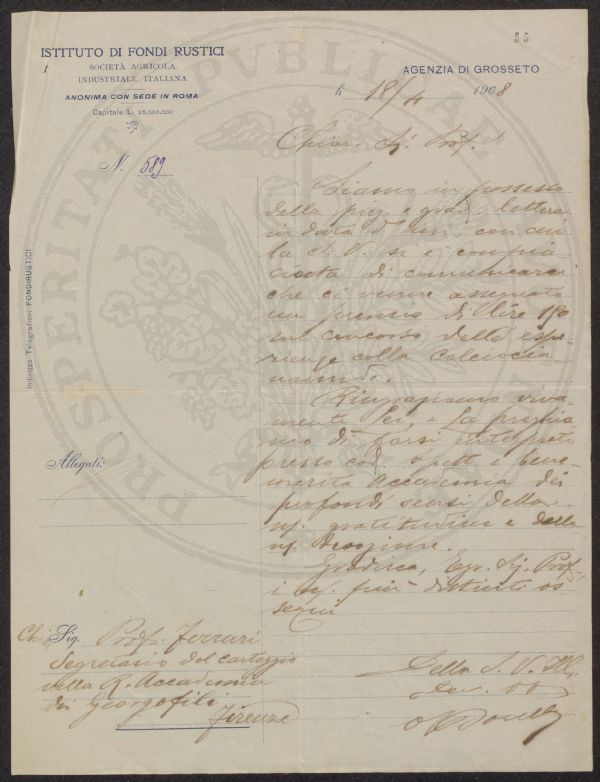 55
ISTITUTO DI FONDI RUSTICI
SOCIETÀ AGRICOLA
INDUSTRIALE ITALIANA
ANONIMA CON SEDE IN ROMA
Capitale L. 25.000.000
AGENZIA DI GROSSETO
li 18/4 1908
N. 589
Chiar. Sig. Prof.
Siamo in possesso
della preg. e grad. lettera
in data d' ieri con cui
la S. V. si è compia
ciuta di comunicarci
che ci venne assegnato
un premio di Lire 150
sul concorso delle espe-
rienze colla calciocia
namide.
Ringraziamo viva-
mente Lei, e La preghia
mo di farsi interprete
presso cod. Spett. e bene-
merita Accademia dei
profondi sensi della
ns. gratitudine e della
ns. devozione.
Gradisca, Egr. Sig. Prof.,
i ns. più distinti os
sequi
Della S. V. Ill.
Dev.
Indirizzo Telegrafico: FONDIRUSTICI
Allegati:
Chiar. Sig. Prof. Ferrari
Segretario del carteggio
della R. Accademia
dei Georgofili
Firenze
PROSPERITATI PUBLICAE